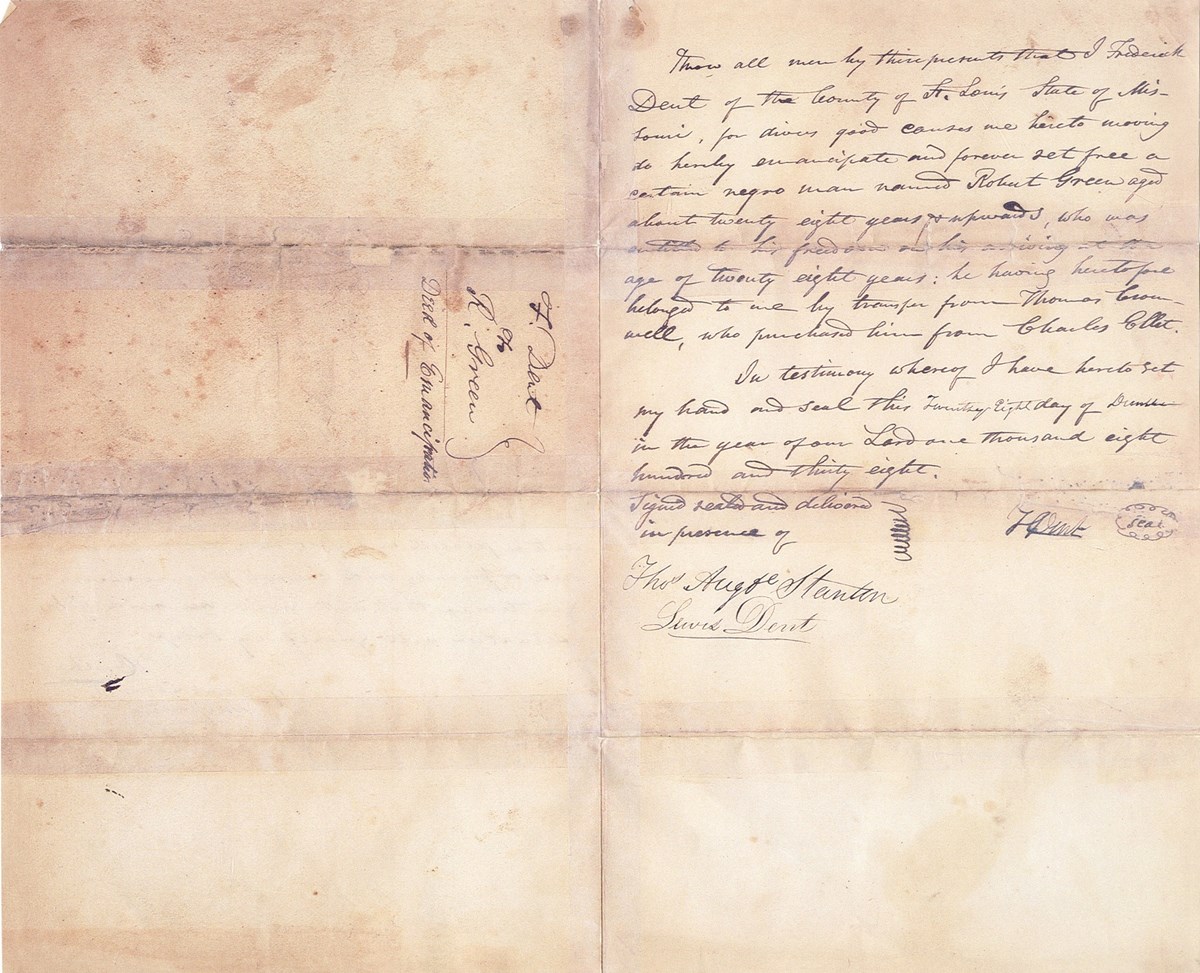 F. Dent
to
R. Green
Deed of Emancipation
Know all men by these presents that I Frederick
Dent of the County of St. Louis State of Mis-
souri, for divers good causes me hereto moving
do hereby emancipate and forever set free a
certain negro man named Robert Green aged
about twenty eight years & upwards, who was
entitled to his freedom on his arriving at the
age of twenty eight years: he having heretofore
belonged to me by transfer from Thomas Crom-
well, who purchased him from Charles Ellet.
In testimony whereof I have hereto set
my hand and seal this Twenty Eight day of
in the year of our Lord one thousand eight
hundred and thirty eight.
Signed sealed and delivered
in presence of
F Dent seal
Thos Augte Stanton
Lewis Dent